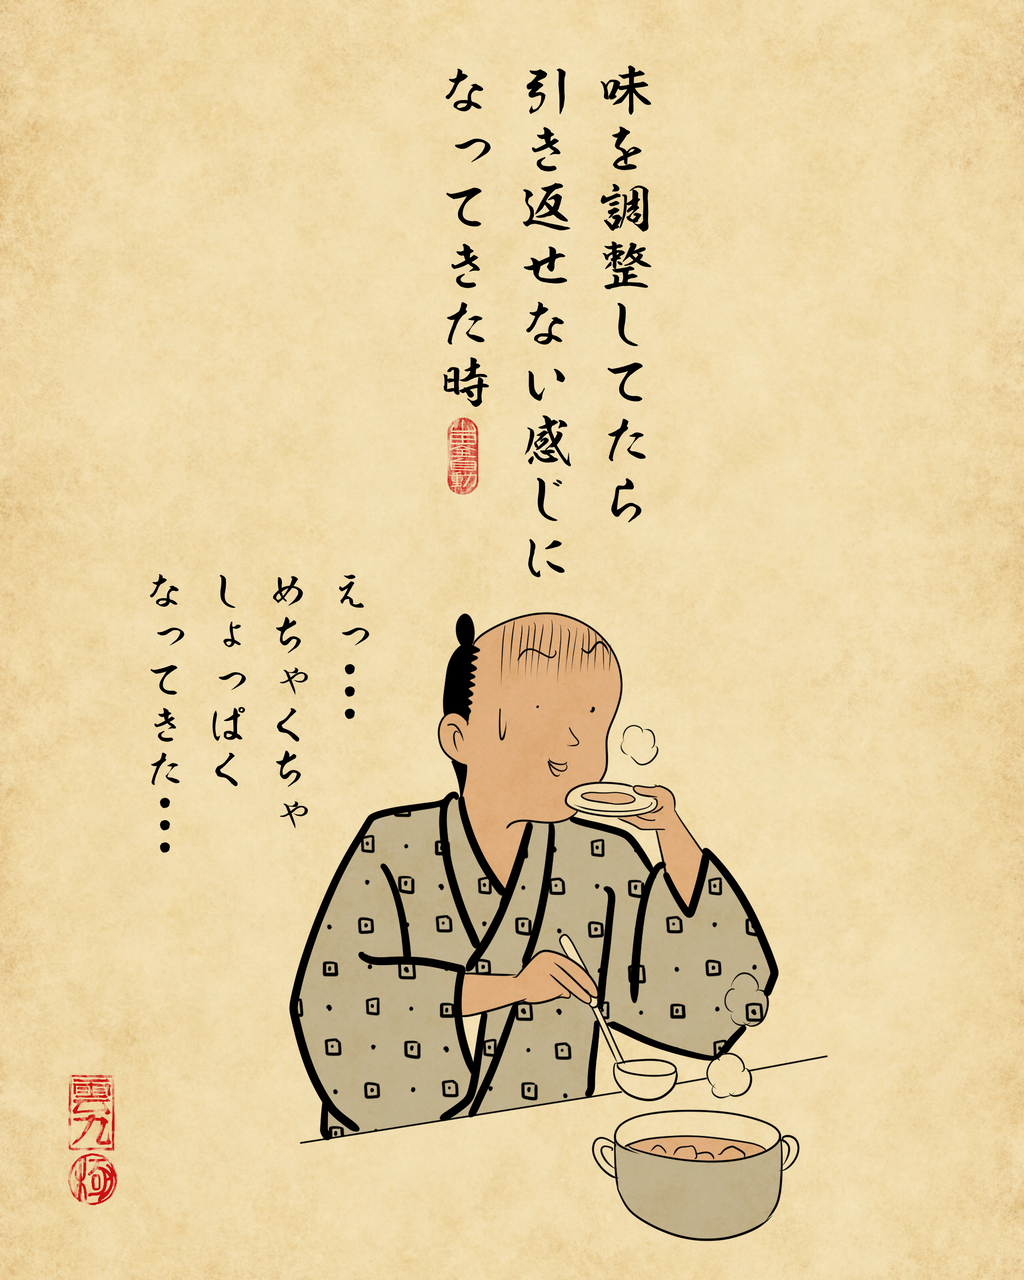 味を調整してたら
引き返せない感じに
なってきた時
えっ・・・
めちゃくちゃ
しょっぱく
なってきた・・・